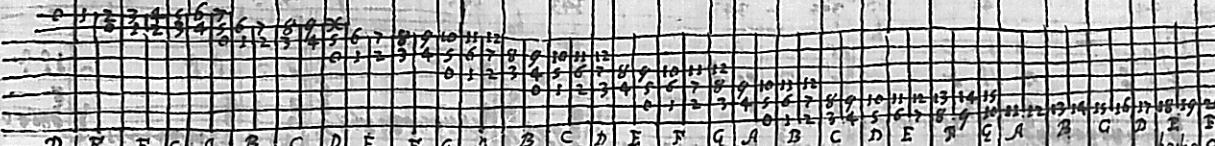 0 1 2 3 4 5 6 7
0 1 2 3 4 5 6 7 8 9
0 1 2 3 4 5 6 7 8 9 10 11 12
0 1 2 3 4 5 6 7 8 9 10 11 12
0 1 2 3 4 5 6 7 8 9 10 11 12
0 1 2 3 4 5 6 7 8 9 10 11 12
0 1 2 3 4 5 6 7 8 9 10 11 12 13 14 15
0 1 2 3 4 5 6 7 8 9 10 11 12 13 14 15 16 17 18 19
D E F G A B C D E F G A B C D E F G A B C D E F G A B C D E F